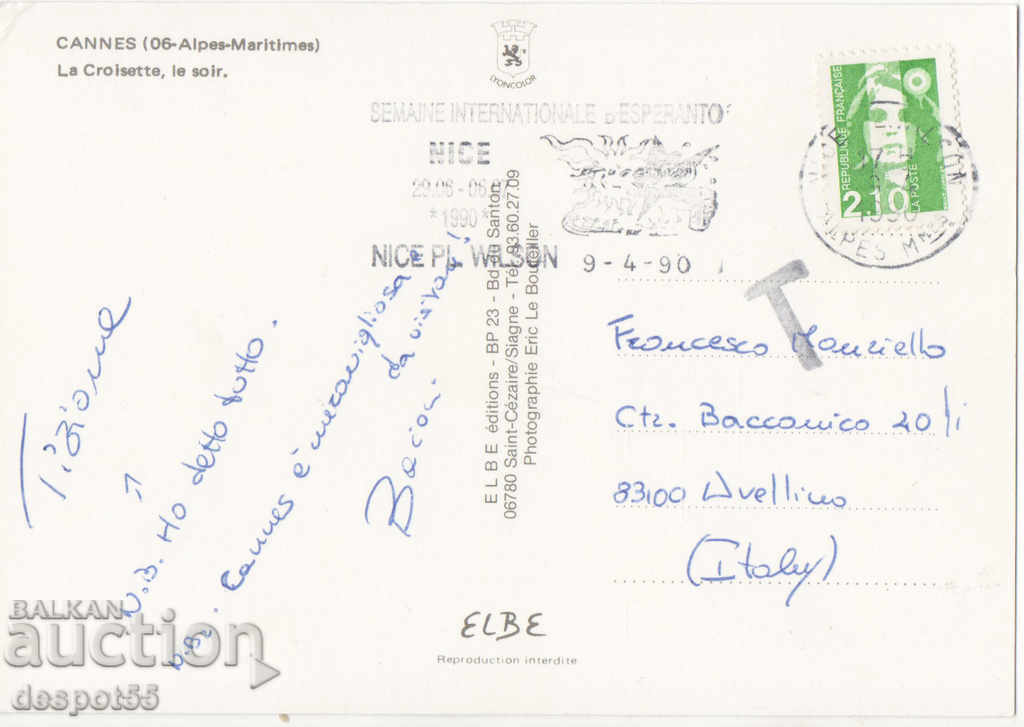 CANNES (06-Alpes-Maritimes)
La Croisette, le soir.
LYONCOLOR
SEMAINE INTERNATIONALE D'ESPERANTO
NICE
29.06 - 06.07
*1990*
NICE PL. WILSON 9-4-90
REPUBLIQUE FRANÇAISE
LA POSTE
2.10
1990
ALPES MMES
T
Tiziana
N.B. Ho detto tutto.
N.B. Cannes è meravigliosa
da visitare!
Bacioni
ELBE éditions - BP 23 - Bd du Santon
06780 Saint-Cézaire/Siagne - Tél. 93.60.27.09
Photographie Eric Le Bouteiller
Francesco
Ctr. Bacconico 20/i
83100 Avellino
(Italy)
ELBE
Reproduction interdite
BALKAN
auction
despot55